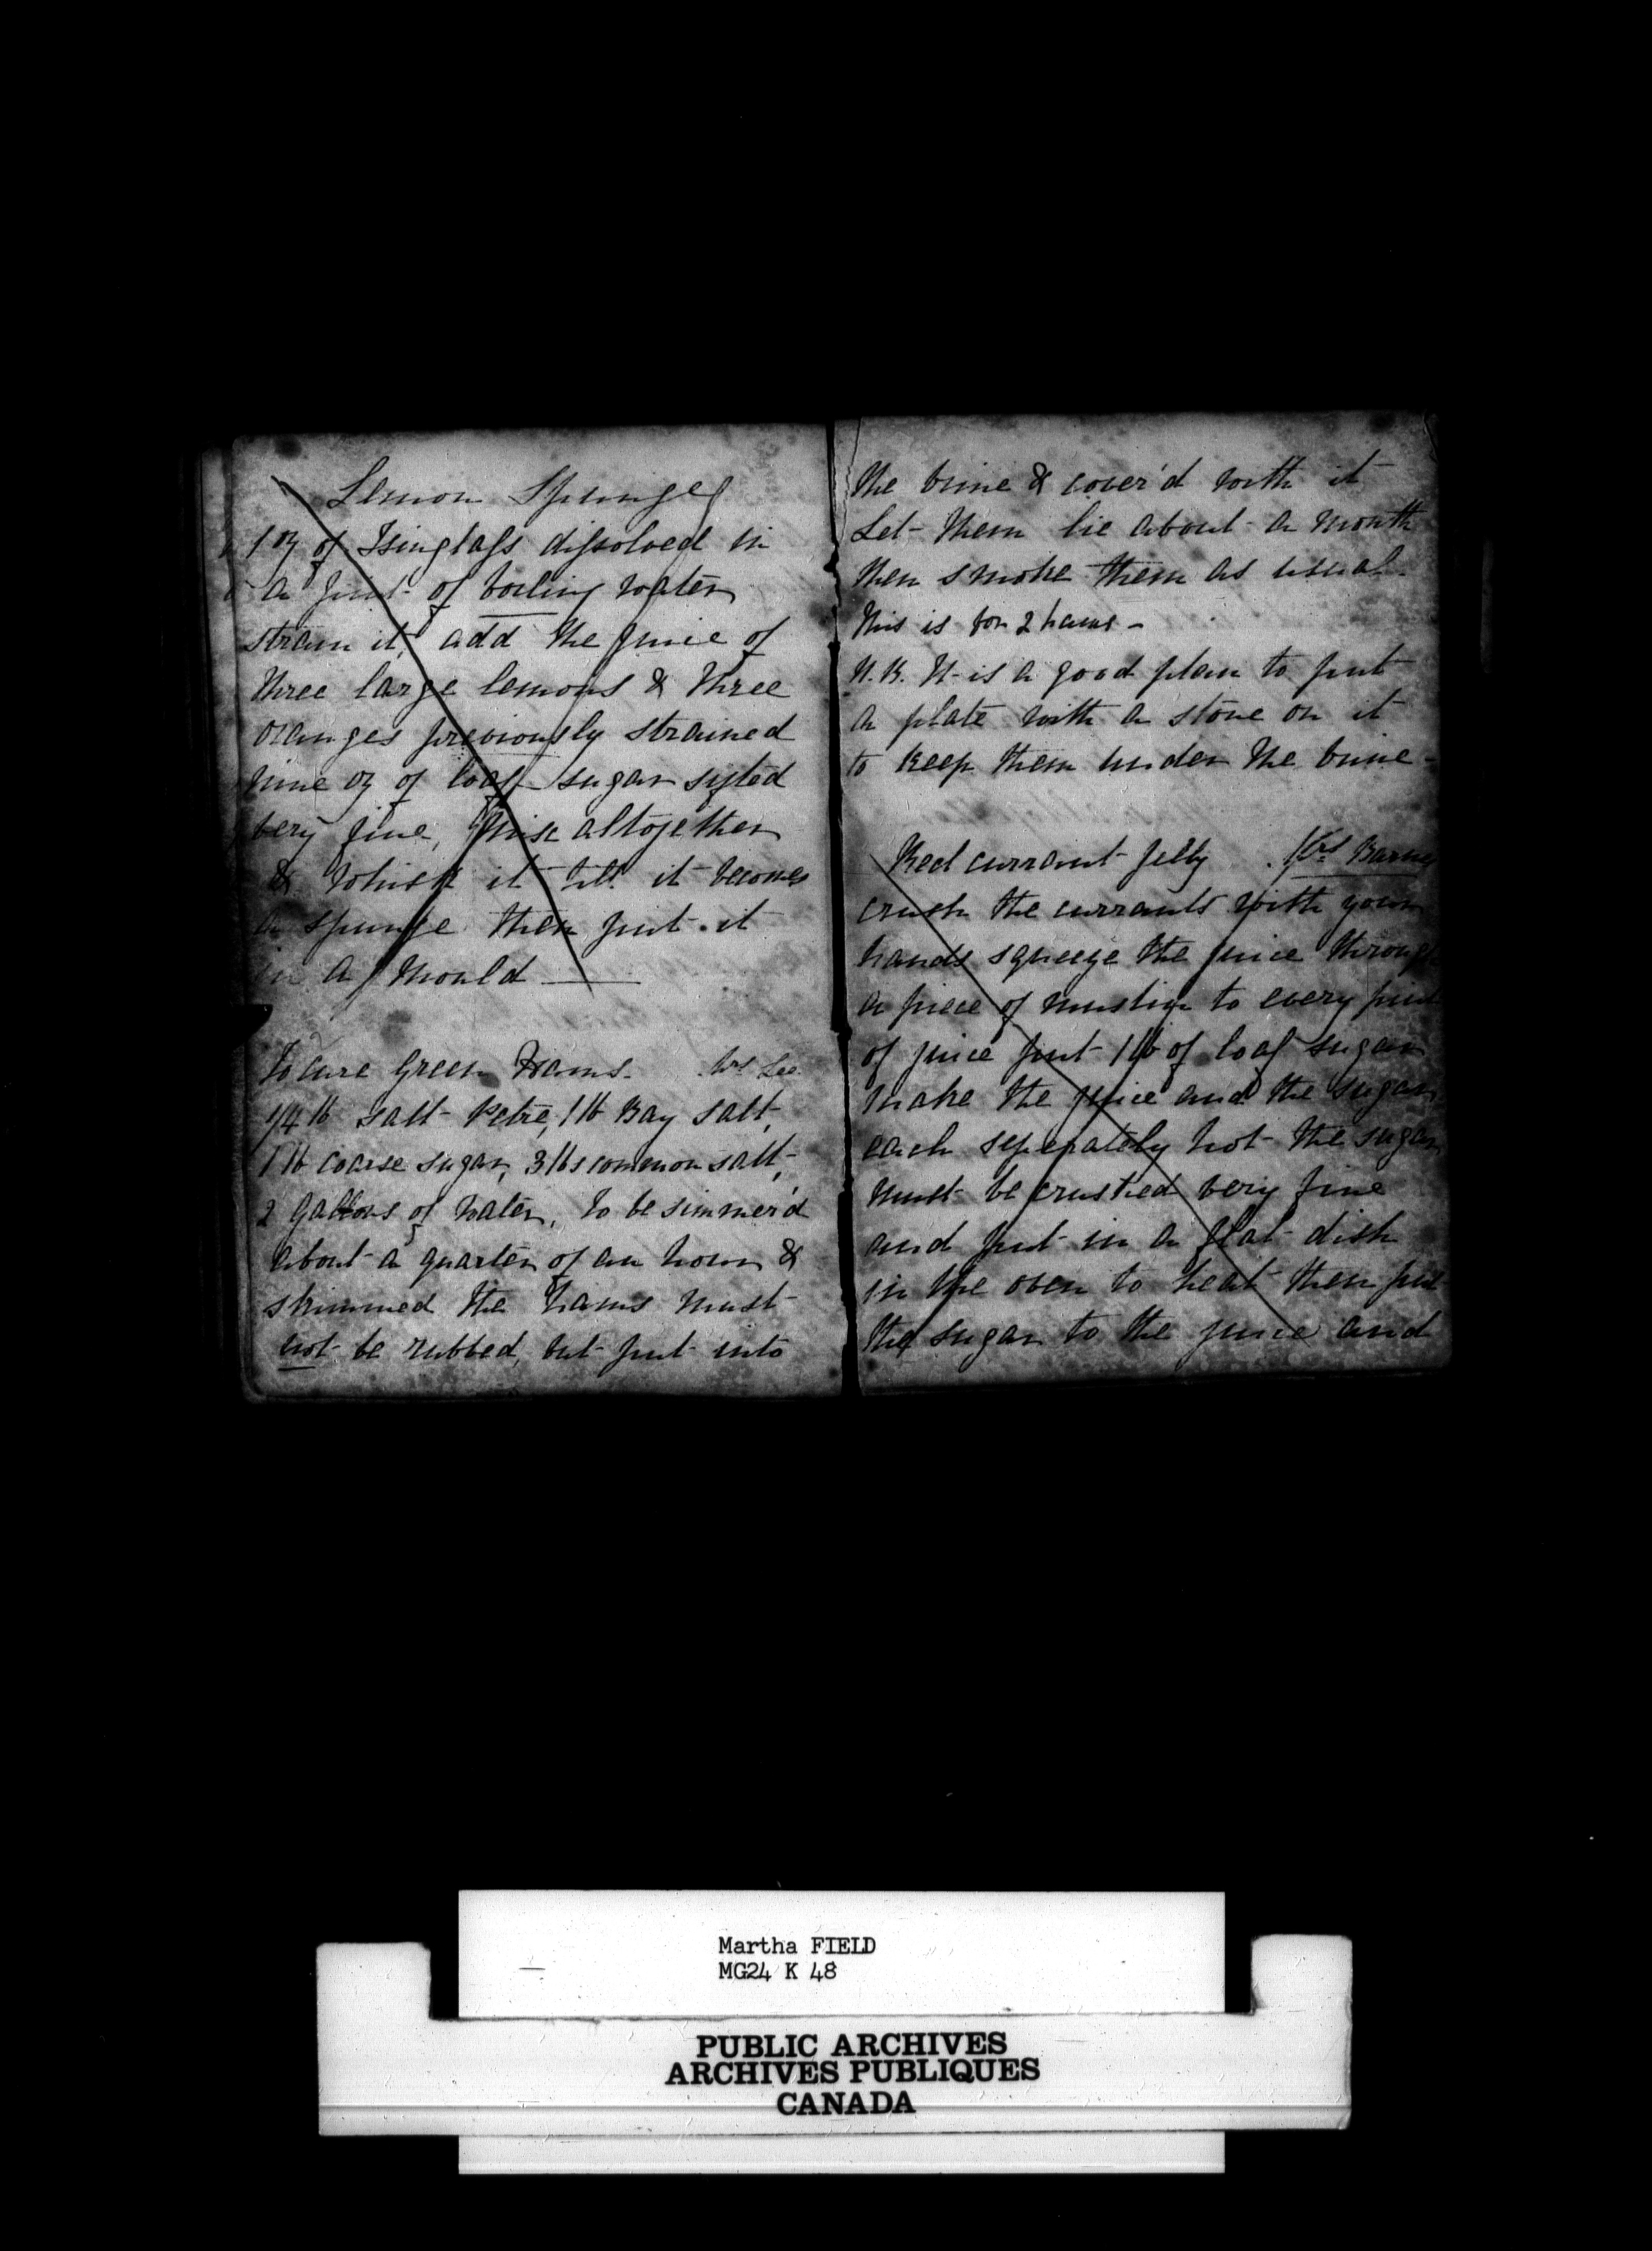 Lemon Spunge
1 oz of Isinglass dissolved in
a pint of boiling water
strain it, add the juice of
three large lemons & three
oranges previously strained
nine oz of loaf sugar syted
very fine, Mix altogether
& whisk it till it becomes
a spunge then put it
in a mould
To cure Green Hams. Mrs Lee
1/4 lb salt Petre, 1 lb Bay salt,
1 lb coarse sugar, 3 lbs common salt,
2 Gallons of water, to be simmer'd
about a quarter of an hour &
skimmed the hams must
not be rubbed, but put into
the brine & cover'd with it
Let them lie about a month
then smoke them as usual
This is for 2 hams
N.B. It is a good plan to put
a plate with a stone on it
to keep them under the brine
Red currant Jelly Mrs
crush the currants with your
hands squeeze the juice through
a piece of muslin to every pint
of juice put 1 lb of loaf sugar
make the juice and the sugar
each seperately hot the sugar
must be crushed very fine
and put in a flat dish
in the oven to heat then put
the sugar to the juice and
Martha FIELD
MG24 K 48
PUBLIC ARCHIVES
ARCHIVES PUBLIQUES
CANADA